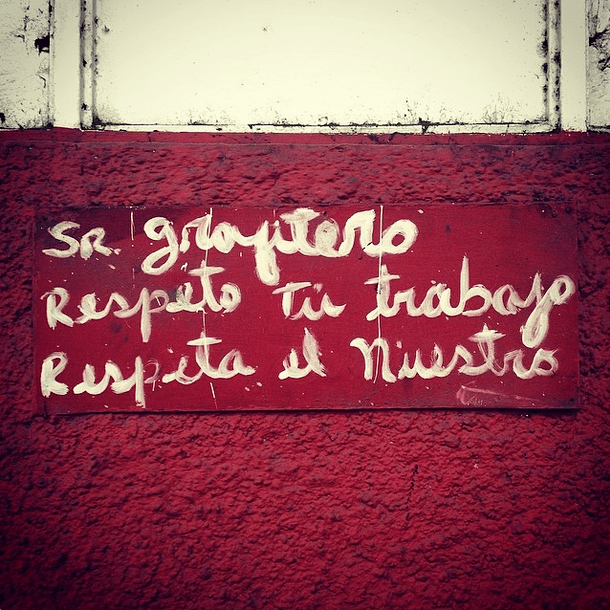 SR. grafitero
Respeto tú trabajo
Respeta el Nuestro